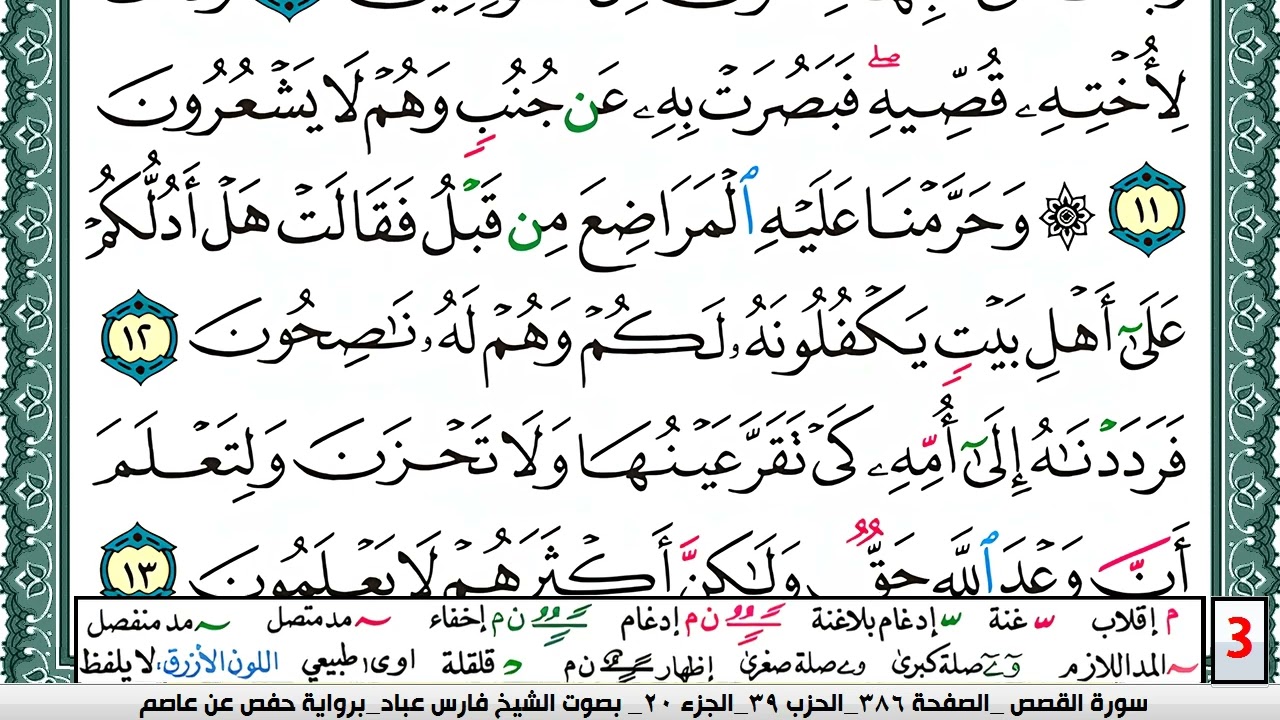 لِأُخْتِهِۦ قُصِّيهِ ۖ فَبَصُرَتْ بِهِۦ عَن جُنُبٍ وَهُمْ لَا يَشْعُرُونَ
١١ ۞ وَحَرَّمْنَا عَلَيْهِ ٱلْمَرَاضِعَ مِن قَبْلُ فَقَالَتْ هَلْ أَدُلُّكُمْ
عَلَىٰٓ أَهْلِ بَيْتٍ يَكْفُلُونَهُۥ لَكُمْ وَهُمْ لَهُۥ نَٰصِحُونَ ١٢
فَرَدَدْنَٰهُ إِلَىٰٓ أُمِّهِۦ كَىْ تَقَرَّ عَيْنُهَا وَلَا تَحْزَنَ وَلِتَعْلَمَ
أَنَّ وَعْدَ ٱللَّهِ حَقٌّ وَلَٰكِنَّ أَكْثَرَهُمْ لَا يَعْلَمُونَ ١٣
م إقلاب س غنة س إدغام بلاغنة ن م إدغام ن م إخفاء مد متصل مد منفصل
المد اللازم صلة كبرى صلة صغرى إظهار ن م قلقلة اوى طبيعي اللون الأزرق: لا يلفظ
3
سورة القصص _الصفحة ٣٨٦_الحزب ٣٩_الجزء ٢٠_ بصوت الشيخ فارس عباد_برواية حفص عن عاصم